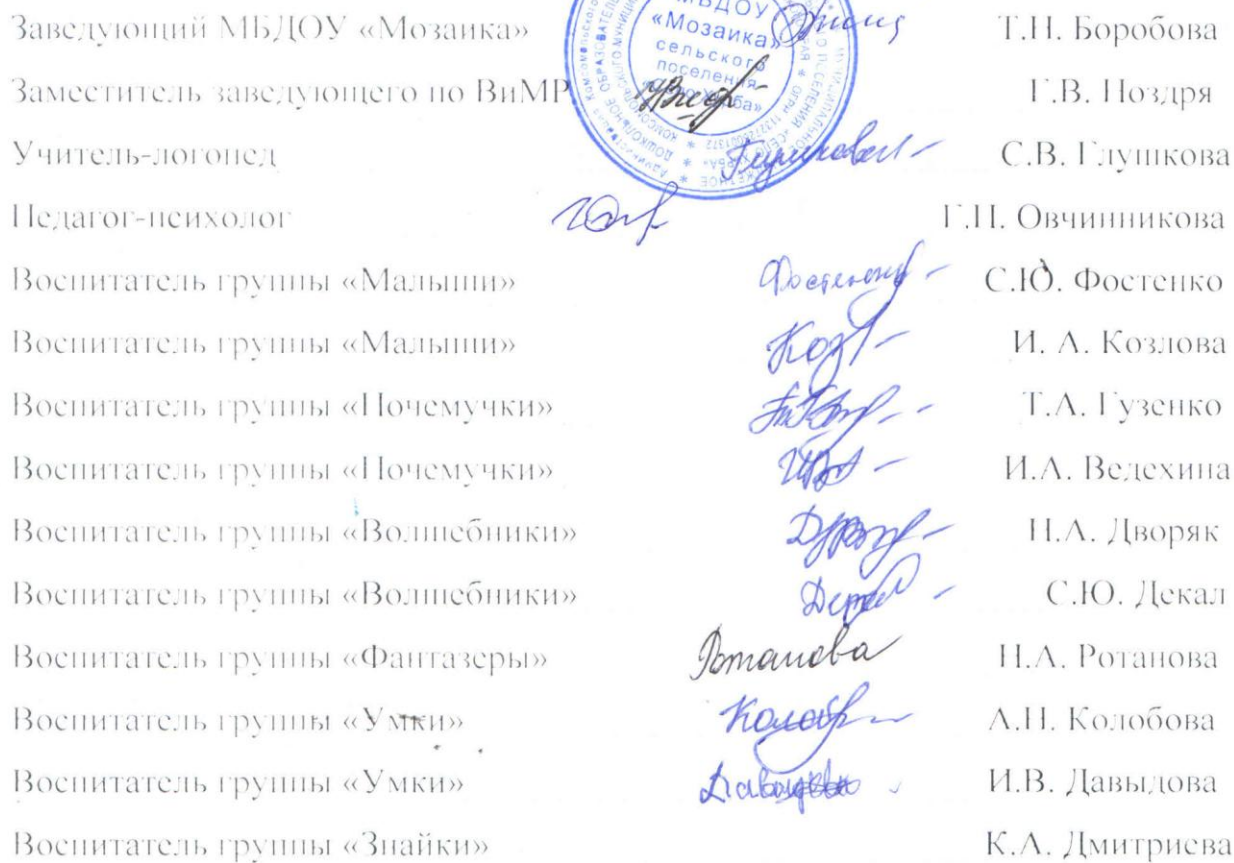 МБДОУ
«Мозаика»
сельского
поселения
Заведующий МБДОУ «Мозаика» Т.Н. Боробова
Заместитель заведующего по ВиМР Г.В. Ноздря
Учитель-логопед С.В. Глушкова
Педагог-психолог Г.П. Овчинникова
Воспитатель группы «Малыши» Фостенко С.Ю. Фостенко
Воспитатель группы «Малыши» Козл И. А. Козлова
Воспитатель группы «Почемучки» Т.А. Гузенко
Воспитатель группы «Почемучки» И.А. Ведехина
Воспитатель группы «Волшебники» Н.А. Дворяк
Воспитатель группы «Волшебники» С.Ю. Декал
Воспитатель группы «Фантазеры» Ротанова Н.А. Ротанова
Воспитатель группы «Умки» А.Н. Колобова
Воспитатель группы «Умки» Давыдова И.В. Давыдова
Воспитатель группы «Знайки» К.А. Дмитриева